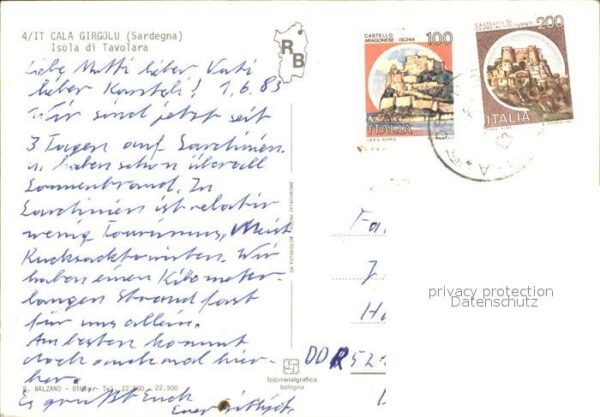 4/IT CALA GIRGOLU (Sardegna)
Isola di Tavolara
RB
CASTELLO
ARAGONESE ISCHIA
100
ITALIA
200
ITALIA
Liebe Mutti lieber Vati
lieber 1.6.83
Wir sind jetzt seit
3 Tagen auf Sardinien
u. haben schon überall
Sonnenbrand. In
Sardinien ist relativ
wenig Tourismus, Meist
Rucksacktouristen. Wir
haben einen Kilometer-
langen Strand fast
für uns allein.
Am besten kommt
doch auch mal hier-
her.
Es grüßt Euch
Euer
BALZANO - Olbia - Tel. 22.900 - 22.900
fotometalgrafica
bologna
Fa
J
Ha
DDR 52
privacy protection
Datenschutz